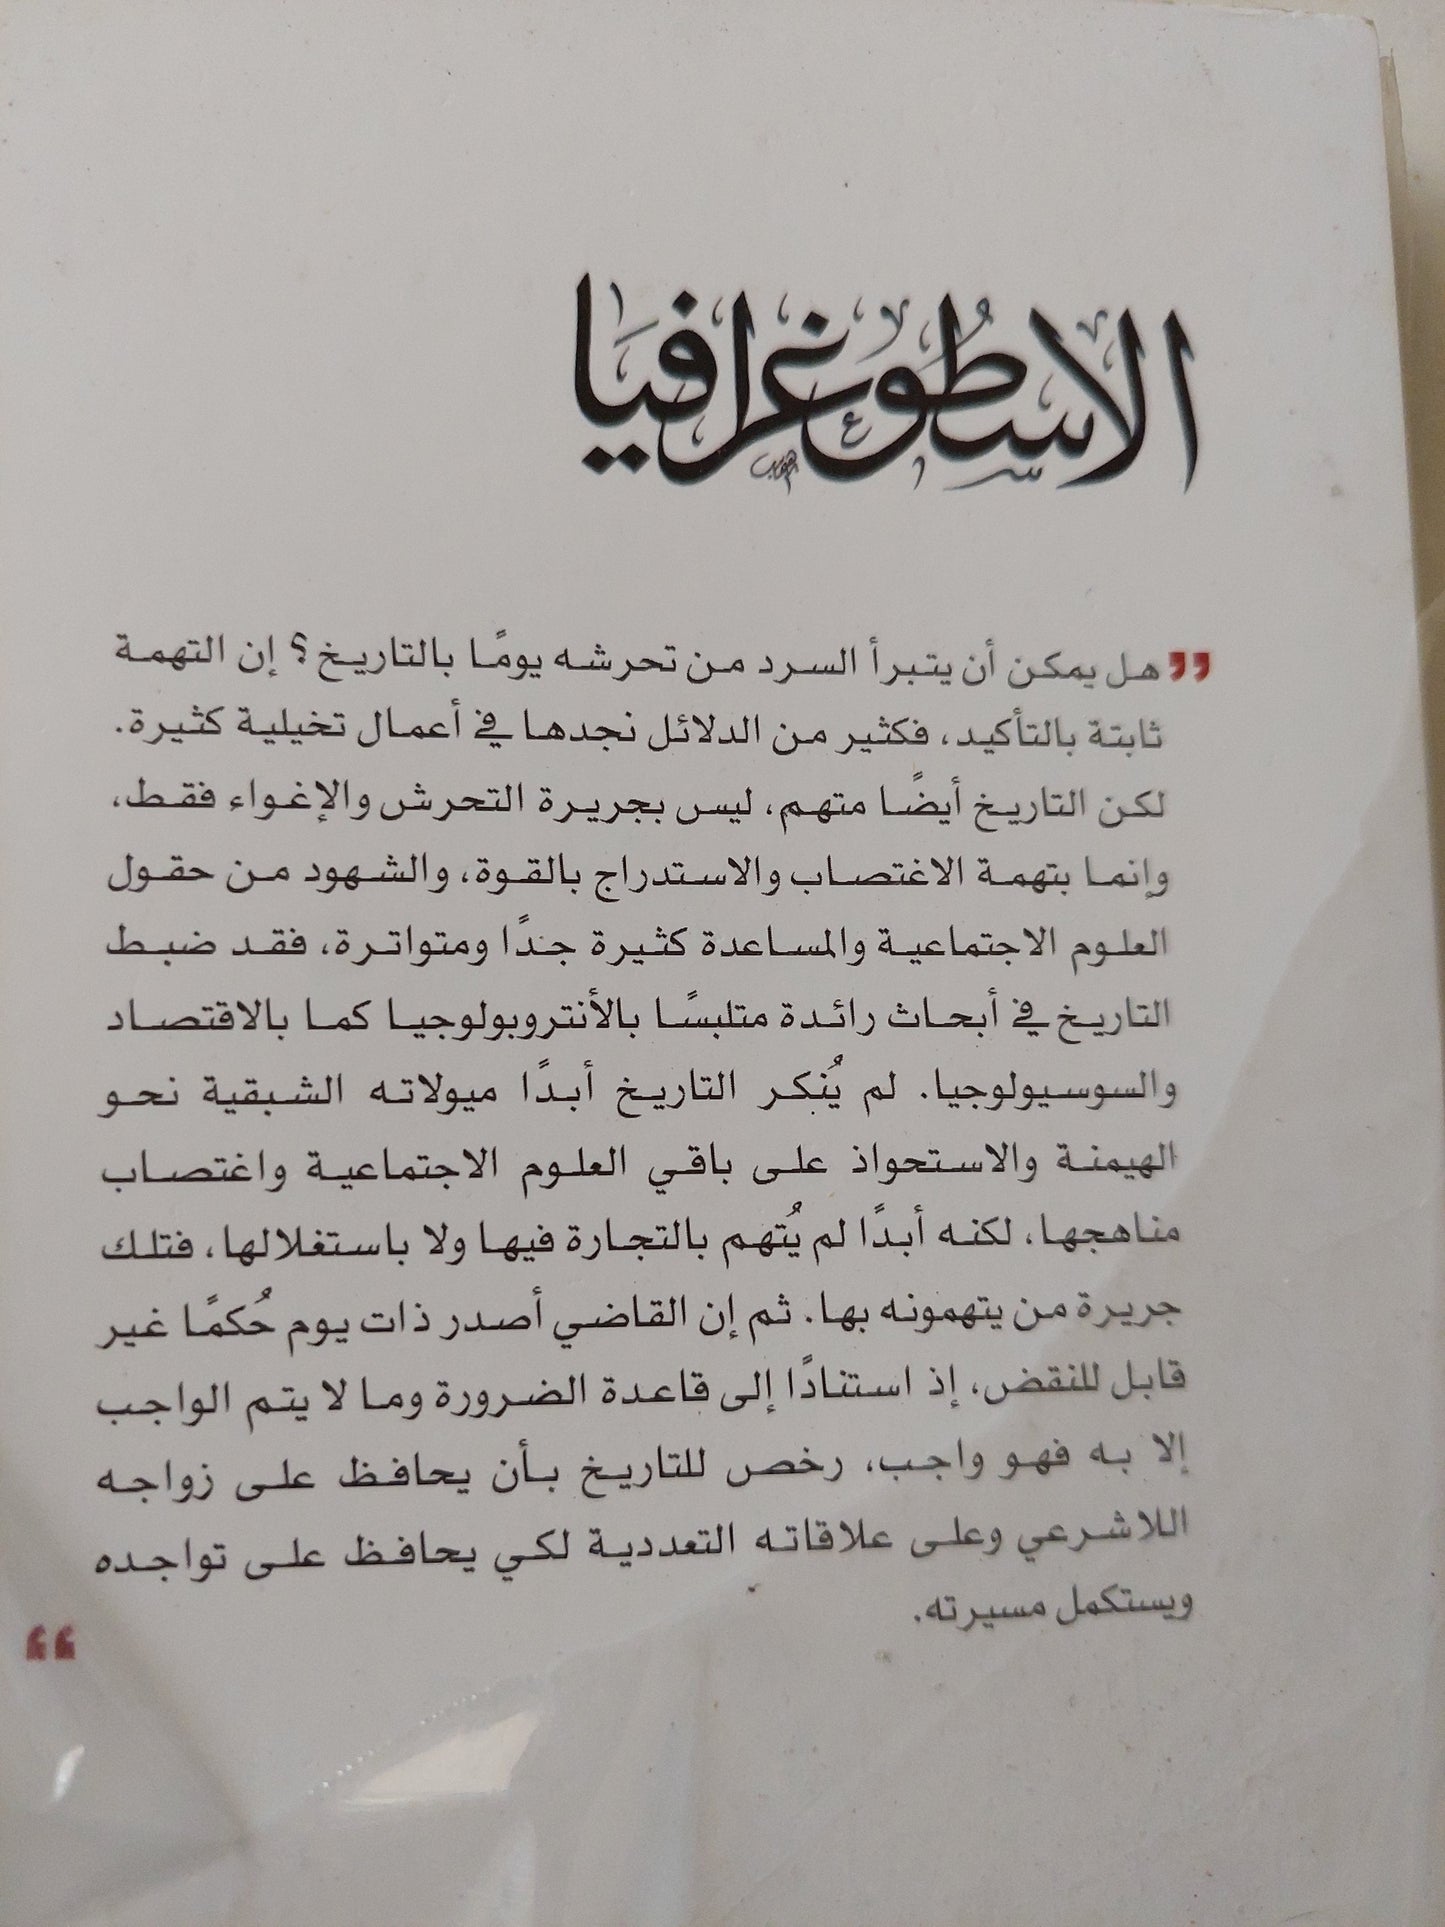 الاسطوغرافيا
هل يمكن أن يتبرأ السرد من تحرشه يومًا بالتاريخ؟ إن التهمة
ثابتة بالتأكيد، فكثير من الدلائل نجدها في أعمال تخيلية كثيرة.
لكن التاريخ أيضًا متهم، ليس بجريرة التحرش والإغواء فقط،
وإنما بتهمة الاغتصاب والاستدراج بالقوة، والشهود من حقول
العلوم الاجتماعية والمساعدة كثيرة جدًا ومتواترة، فقد ضبط
التاريخ في أبحاث رائدة متلبسًا بالأنتروبولوجيا كما بالاقتصاد
والسوسيولوجيا. لم يُنكر التاريخ أبدًا ميولاته الشبقية نحو
الهيمنة والاستحواذ على باقي العلوم الاجتماعية واغتصاب
مناهجها، لكنه أبدًا لم يُتهم بالتجارة فيها ولا باستغلالها، فتلك
جريرة من يتهمونه بها. ثم إن القاضي أصدر ذات يوم حُكمًا غير
قابل للنقض، إذ استنادًا إلى قاعدة الضرورة وما لا يتم الواجب
إلا به فهو واجب، رخص للتاريخ بأن يحافظ على زواجه
اللاشرعي وعلى علاقاته التعددية لكي يحافظ على تواجده
ويستكمل مسيرته.